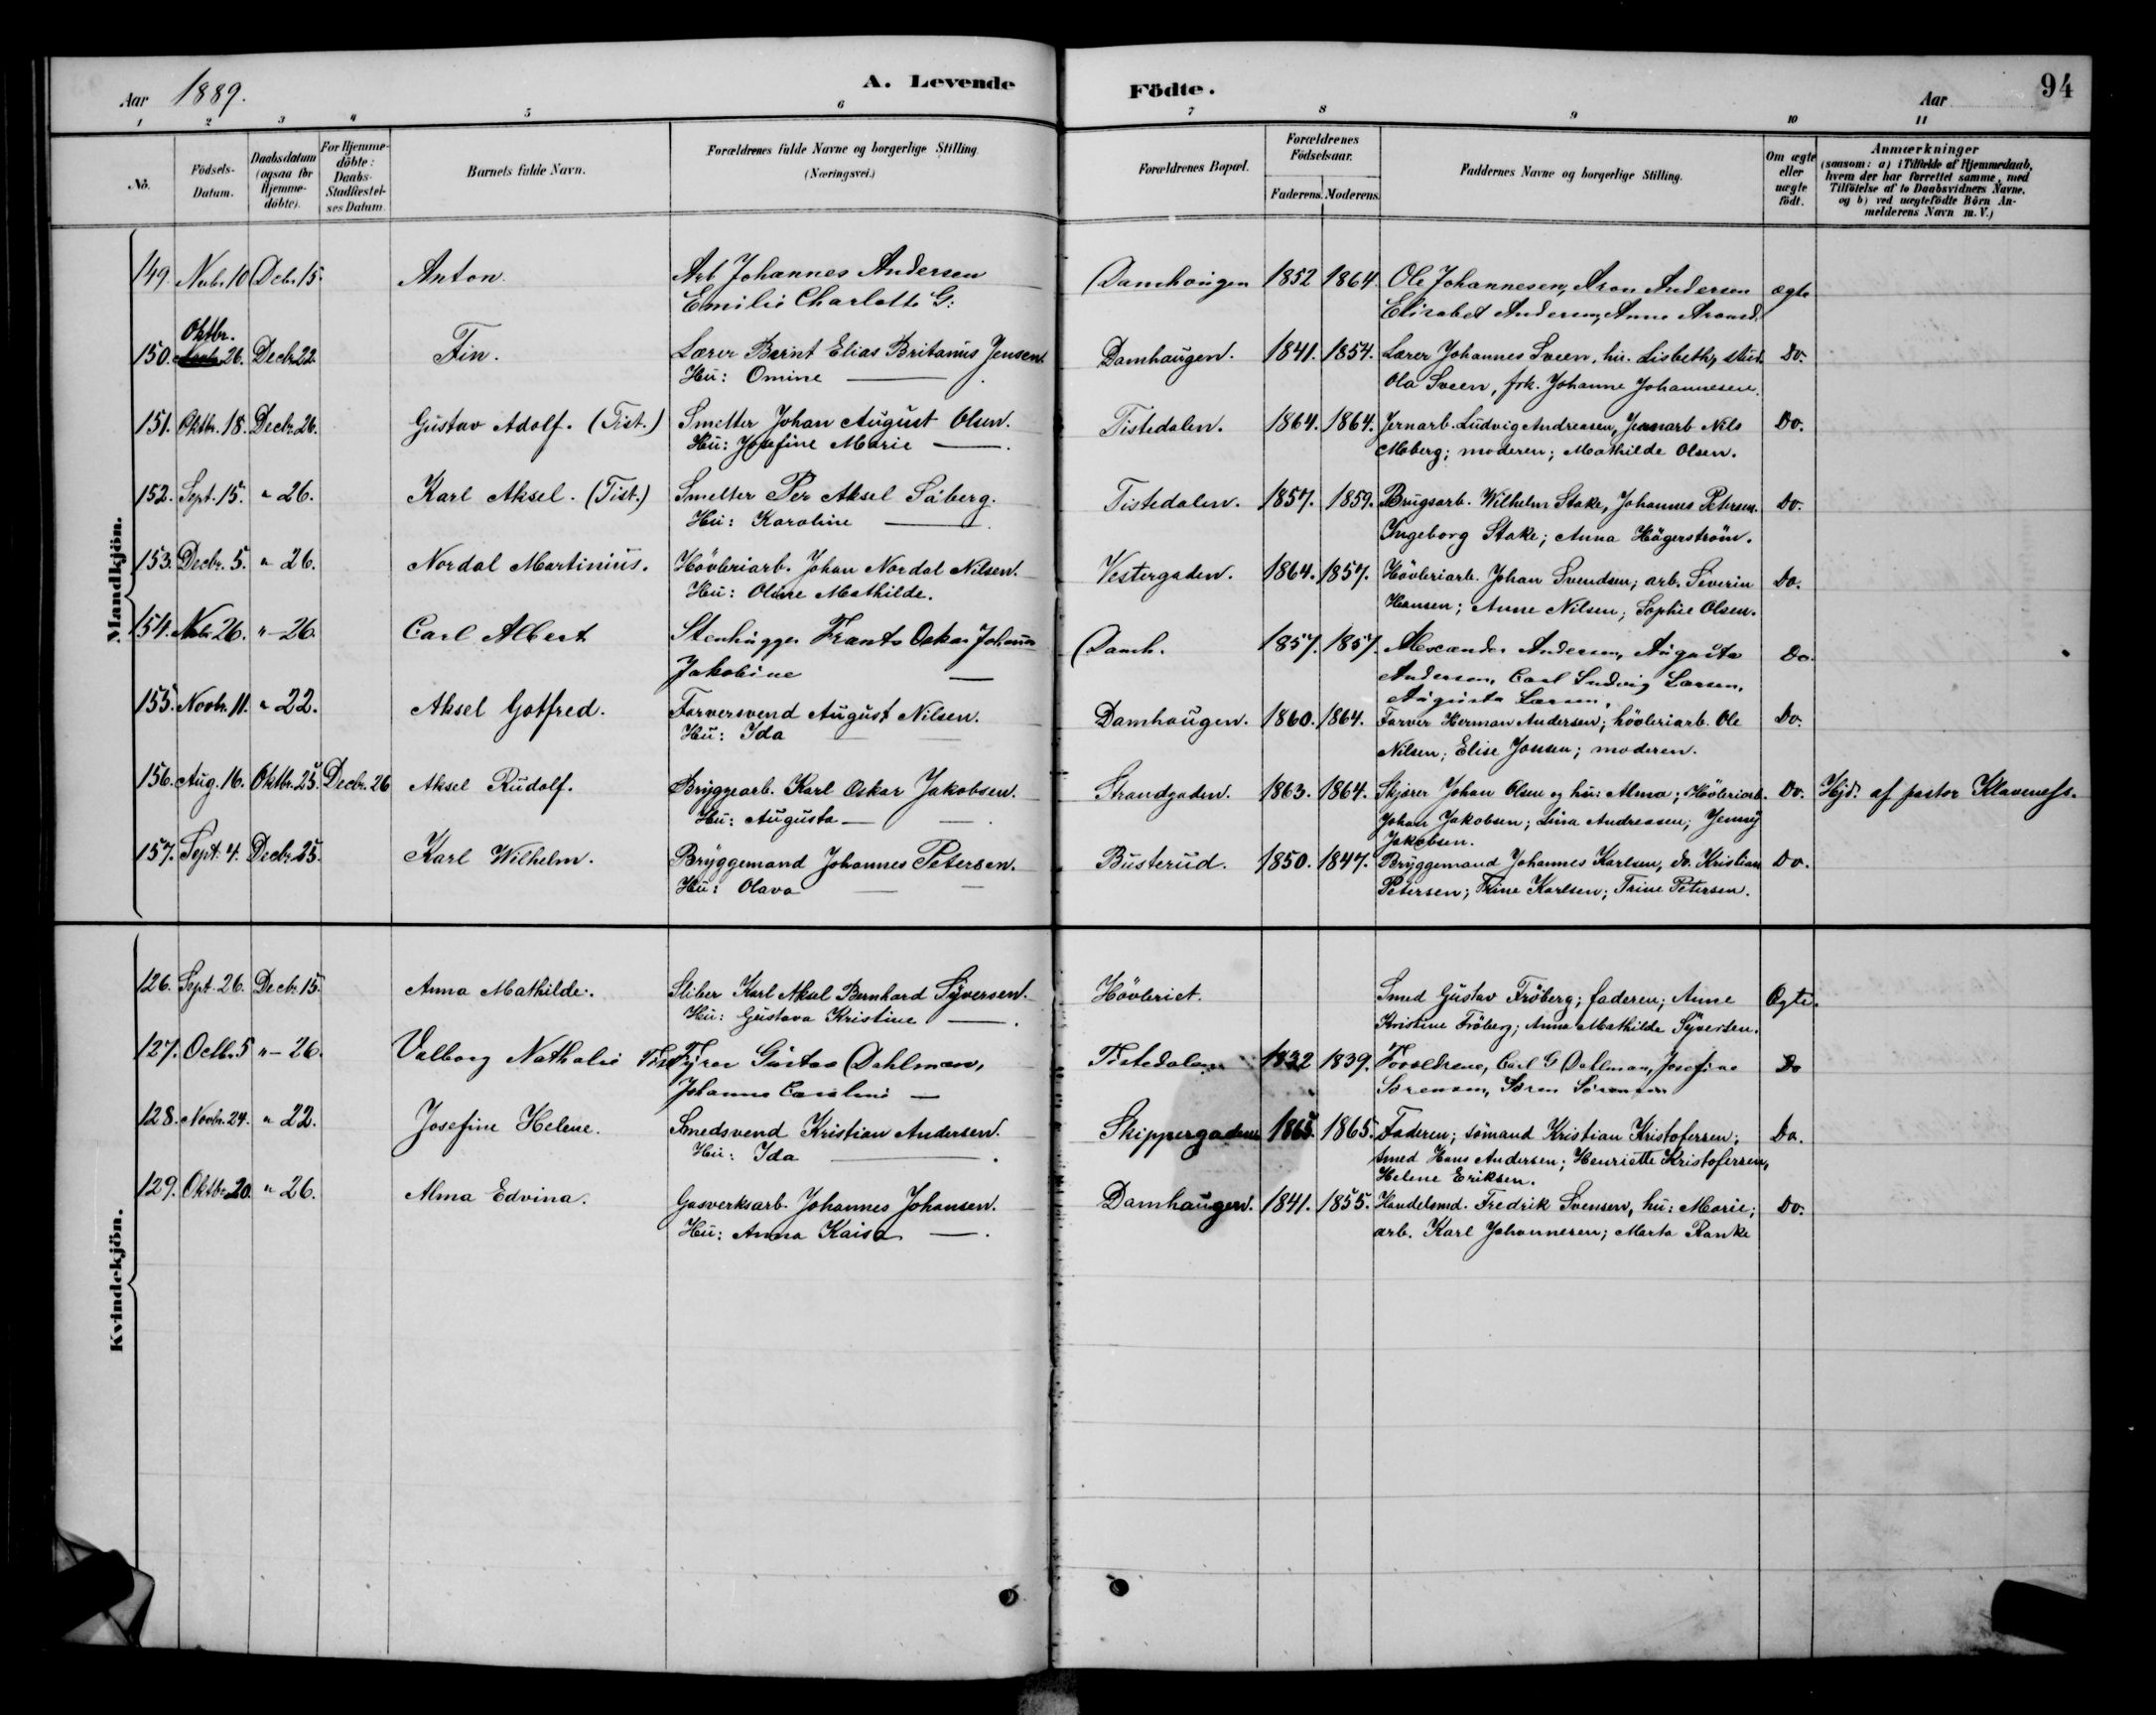 Aar 1889.
A. Levende Födte.
Aar
94
1 2 3 4 5 6 7 8 9 10 11
Nö.
Födsels-Datum.
Daabsdatum (ogsaa for Hjemme-döbte).
For Hjemme-döbte: Daabs-Stadfæstel-ses Datum.
Barnets fulde Navn.
Forældrenes fulde Navne og borgerlige Stilling (Næringsvei.)
Forældrenes Bopæl.
Forældrenes Födselsaar.
Faderens. Moderens.
Faddernes Navne og borgerlige Stilling.
Om ægte eller uægte födt.
Anmærkninger (saasom: a) i Tilfælde af Hjemmedaab, hvem der har forrettet samme, med Tilföielse af to Daabsvidners Navne, og b) ved uægtefödte Börn An-melderens Navn m. V.)
Mandkjön.
149. Novbr. 10 Decbr. 15. Anton. Arb Johannes Andersen Damhaugen 1852 1864. Ole Johannesen, Aron Andersen ægte
Emilie Charlotte G: Elisabet Andersen, Anne Aronsd.
Oktbr.
150. 26. Decbr. 22 Fin. Lærer Bernt Elias Britanus Jensen. Damhaugen. 1841. 1854. Lærer Johannes Sveen, hu. Lisbeth, stud. Do.
Hu: Omine — Ola Sveen, frk. Johanne Johannesen.
151. Oktbr. 18. Decbr. 26. Gustav Adolf. (Tist.) Smelter Johan August Olsen. Tistedalen. 1864. 1864. Jernarb. Ludvig Andreasen, Jernarb Nils Do.
Hu: Josefine Marie —. Moberg; moderen; Mathilde Olsen.
152. Sept. 15. " 26. Karl Aksel. (Tist.) Smelter Per Aksel Såberg. Tistedalen. 1857. 1859. Brugsarb. Wilhelm Stake, Johannes Petersen. Do.
Hu: Karoline —. Ingeborg Stake; Anna Hägerström.
153. Decbr. 5. " 26. Nordal Martinius. Hövleriarb. Johan Nordal Nilsen. Vestergaden. 1864. 1857. Hövleriarb. Johan Svendsen; arb. Severin Do.
Hu: Oline Mathilde. Hansen; Anne Nilsen; Sophie Olsen.
154. Nvbr 26. " 26. Carl Albert Stenhugger Frants Oskar Johansen Damh. 1857. 1857. Alexander Andersen, Augusta Do.
Jakobine — Andersen, Carl Ludvig Larsen,
Augusta Larsen,
155. Novbr. 11. " 22. Aksel Gotfred. Farversvend August Nilsen. Damhaugen. 1860. 1864. Farver Herman Andersen; hövleriarb. Ole Do.
Hu: Ida — — Nilsen; Elise Jonsen; moderen.
156. Aug. 16. Oktbr. 25. Decbr. 26 Aksel Rudolf. Bryggearb. Karl Oskar Jakobsen. Strandgaden. 1863. 1864. Skjærer Johan Olsen og hu: Alma; Hövleriarb. Do. Hjd. af pastor Klaveness.
Hu: Augusta — —. Johan Jakobsen; Lina Andreasen; Jenny
Jakobsen.
157. Sept. 4. Decbr. 25. Karl Wilhelm. Bryggemand Johannes Petersen. Busterud. 1850. 1847. Bryggemand Johannes Karlsen, do. Kristian Do.
Hu: Olava — — Petersen; Trine Karlsen; Trine Petersen.
Kvindekjön.
126. Sept. 26. Decbr. 15. Anna Mathilde. Sliber Karl Aksel Bernhard Syversen. Hövleriet. Smed Gustav Fröberg; faderen; Anne Ægte.
Hu: Gustava Kristine —. Kristine Fröberg; Anna Mathilde Syversen.
127. Octbr. 5 " 26. Valborg Nathalie Tist Fyrer Gustav Dahlman, Tistedalen 1832 1839. Forældrene, Carl G Dallman, Josefine Do
Johanne Caroline — Sörensen, Sören Sörensen
128. Novbr. 24. " 22. Josefine Helene. Smedsvend Kristian Andersen. Skippergaden 1865. 1865. Faderen; sömand Kristian Kristofersen; Do.
Hu: Ida —. smed Hans Andersen; Henriette Kristofersen,
Helene Eriksen.
129. Oktbr. 20. " 26. Alma Edvina. Gasverksarb. Johannes Johansen. Damhaugen. 1841. 1855. Handelsmd. Fredrik Svensen, hu: Marie; Do.
Hu: Anna Kaisa —. arb. Karl Johannesen; Marta Ranke